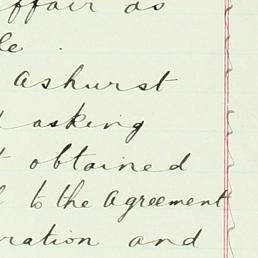 affair as
le.
Ashurst
asking
t obtained
l to the Agreement
ration and